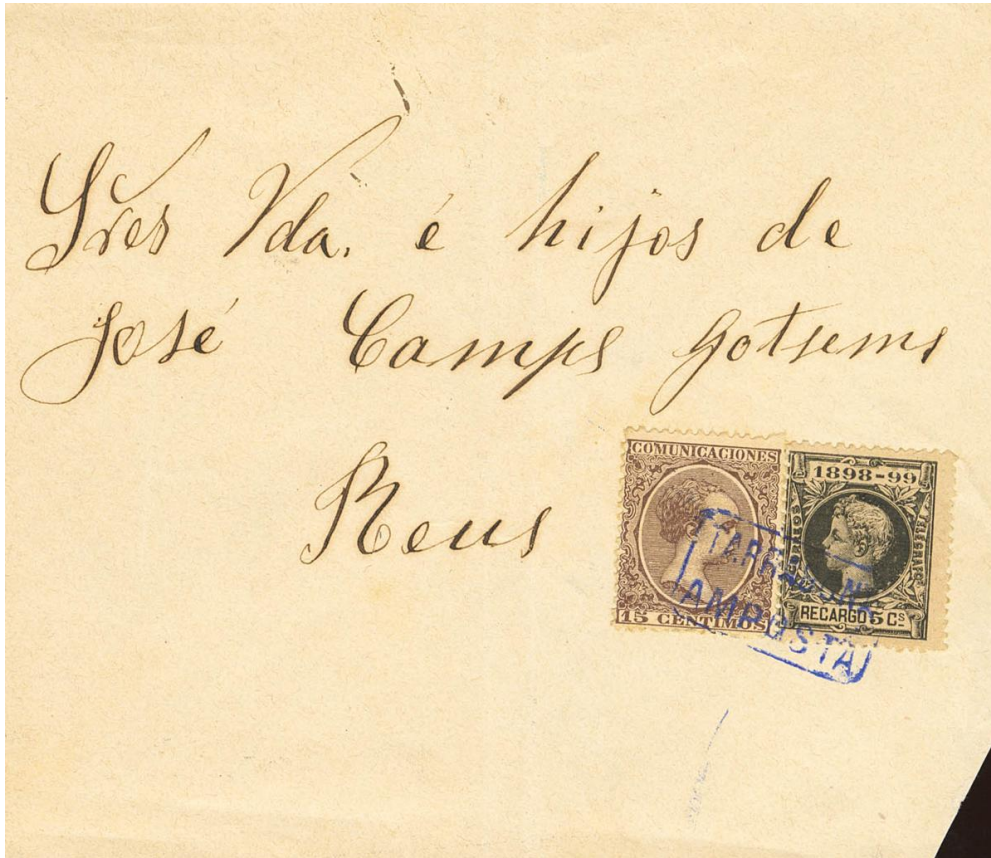 Sres Vda. é hijos de
José Camps Gotsems
Reus
COMUNICACIONES
15 CENTIMOS
1898-99
CORREOS
TELEGRAFS
RECARGO 5 Cs
TARRAGONA
AMPOSTA